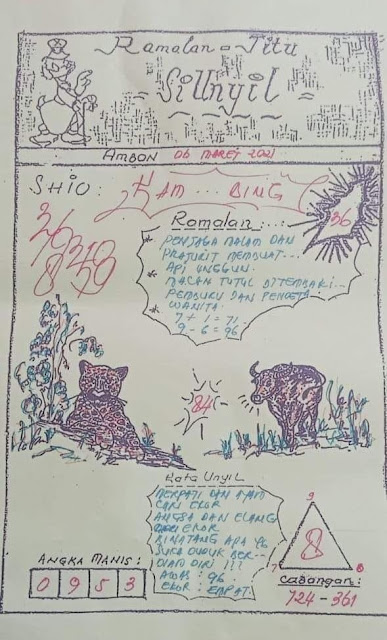 Ramalan - Jitu
"SiUnyil"
AMBON 06 MARET 2021
SHIO: KAM... BING
36
Ramalan...:
* PENJAGA MALAM DAN
PRAJURIT MEMBUAT...
* API UNGGUN.
MACAN TUTUL DITEMBAKI...
* PEMBURU DAN
WANITA..
7 + 1 = 71
9 - 6 = 96
84
Kata Unyil
MERPATI DAN AYAM
CARI EKOR
ANGSA DAN ELANG
CARI EKOR
BINATANG APA YG
SUKA DUDUK BER...
DIAM DIRI !!!
AWAS : 96.
EKOR : EMPAT.
ANGKA MANIS:
0 9 5 3
9
8
7 8
CABANGAN:
724 - 361